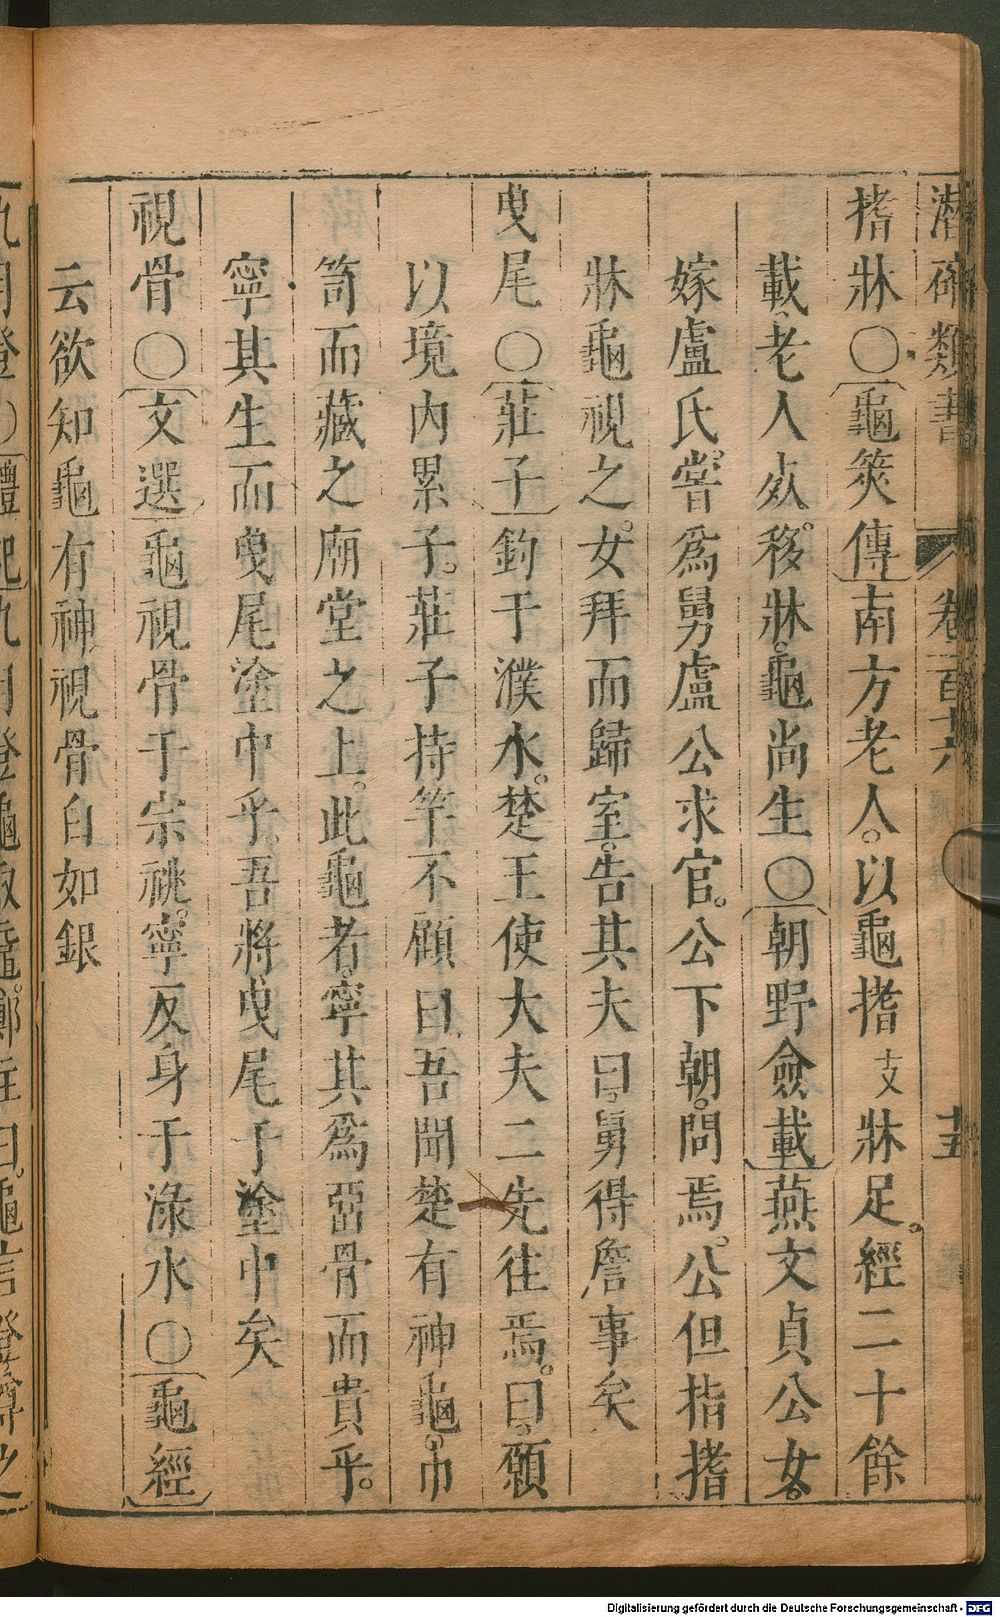 潛確類書 卷一百十六 十五
搘牀○龜筴傳南方老人。以龜搘支牀足。經二十餘
載老人死。移牀。龜尚生○朝野僉載燕文貞公女。
嫁盧氏。嘗爲舅盧公求官。公下朝。問焉。公但指搘
牀龜視之。女拜而歸室。告其夫曰。舅得詹事矣
曳尾○莊子釣于濮水。楚王使大夫二先往焉。曰。願
以境內累子。莊子持竿不顧曰。吾聞楚有神龜。巾
笥而藏之廟堂之上。此龜者。寧其爲畱骨而貴乎。
寧其生而曳尾塗中乎。吾將曳尾于塗中矣
視骨○文選龜視骨于宗祧。寧反身于淥水○龜經
云欲知龜有神視骨白如銀
九月登○禮記九月登龜取黿。鄭註曰。龜言登尊之
Digitalisierung gefördert durch die Deutsche Forschungsgemeinschaft - DFG